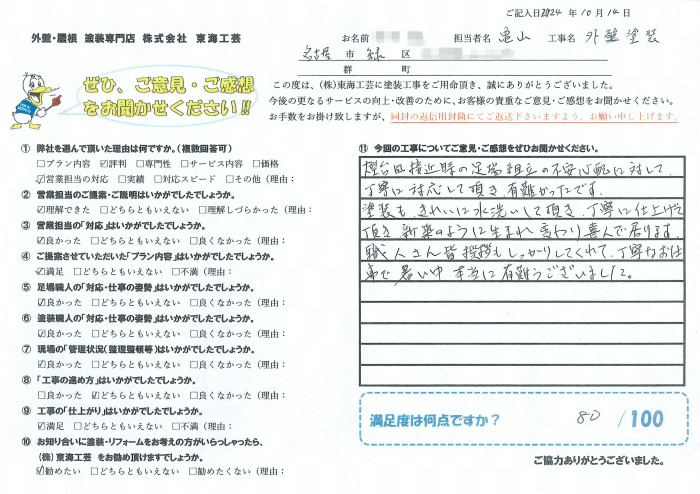 ご記入日2024 年 10 月 14 日
外壁・屋根 塗装専門店 株式会社 東海工芸
お名前 担当者名 亀山 工事名 外壁塗装
名古屋 市 緑 区
群 町
ぜひ、ご意見・ご感想
をお聞かせください!!
この度は、(株)東海工芸に塗装工事をご用命頂き、誠にありがとうございました。
今後の更なるサービスの向上・改善のために、お客様の貴重なご意見・ご感想をお聞かせください。
お手数をお掛け致しますが、同封の返信用封筒にてご返送下さいますよう、お願い申し上げます。
① 弊社を選んで頂いた理由は何ですか。(複数回答可)
□プラン内容 ☑評判 □専門性 □サービス内容 □価格
☑営業担当の対応 □実績 □対応スピード □その他(理由:
② 営業担当のご提案・ご説明はいかがでしたでしょうか。
☑理解できた □どちらともいえない □理解しづらかった(理由:
③ 営業担当の「対応」はいかがでしたでしょうか。
☑良かった □どちらともいえない □良くなかった(理由:
④ ご提案させていただいた「プラン内容」はいかがでしたでしょうか。
☑満足 □どちらともいえない □不満(理由:
⑤ 足場職人の「対応・仕事の姿勢」はいかがでしたでしょうか。
☑良かった □どちらともいえない □良くなかった(理由:
⑥ 塗装職人の「対応・仕事の姿勢」はいかがでしたでしょうか。
☑良かった □どちらともいえない □良くなかった(理由:
⑦ 現場の「管理状況(整理整頓等)はいかがでしたでしょうか。
☑良かった □どちらともいえない □良くなかった(理由:
⑧ 「工事の進め方」はいかがでしたでしょうか。
□良かった ☑どちらともいえない □良くなかった(理由:
⑨ 工事の「仕上がり」はいかがでしたでしょうか。
☑満足 □どちらともいえない □不満(理由:
⑩ お知り合いに塗装・リフォームをお考えの方がいらっしゃったら、
(株)東海工芸 をお勧め頂けますでしょうか。
☑勧めたい □どちらともいえない □勧めたくない(理由:
⑪ 今回の工事についてご意見・ご感想をぜひお聞かせください。
台風接近時の足場組立の不安心配に対して、
丁寧に対応して頂き有難かったです。
塗装も きれいに水洗いして頂き、丁寧に仕上げて
頂き新築のように生まれ変わり喜んで居ります。
職人さん皆挨拶もしっかりしてくれて、丁寧なお仕
事で暑い中 本当に有難うございました。
満足度は何点ですか? 80 /100
ご協力ありがとうございました。